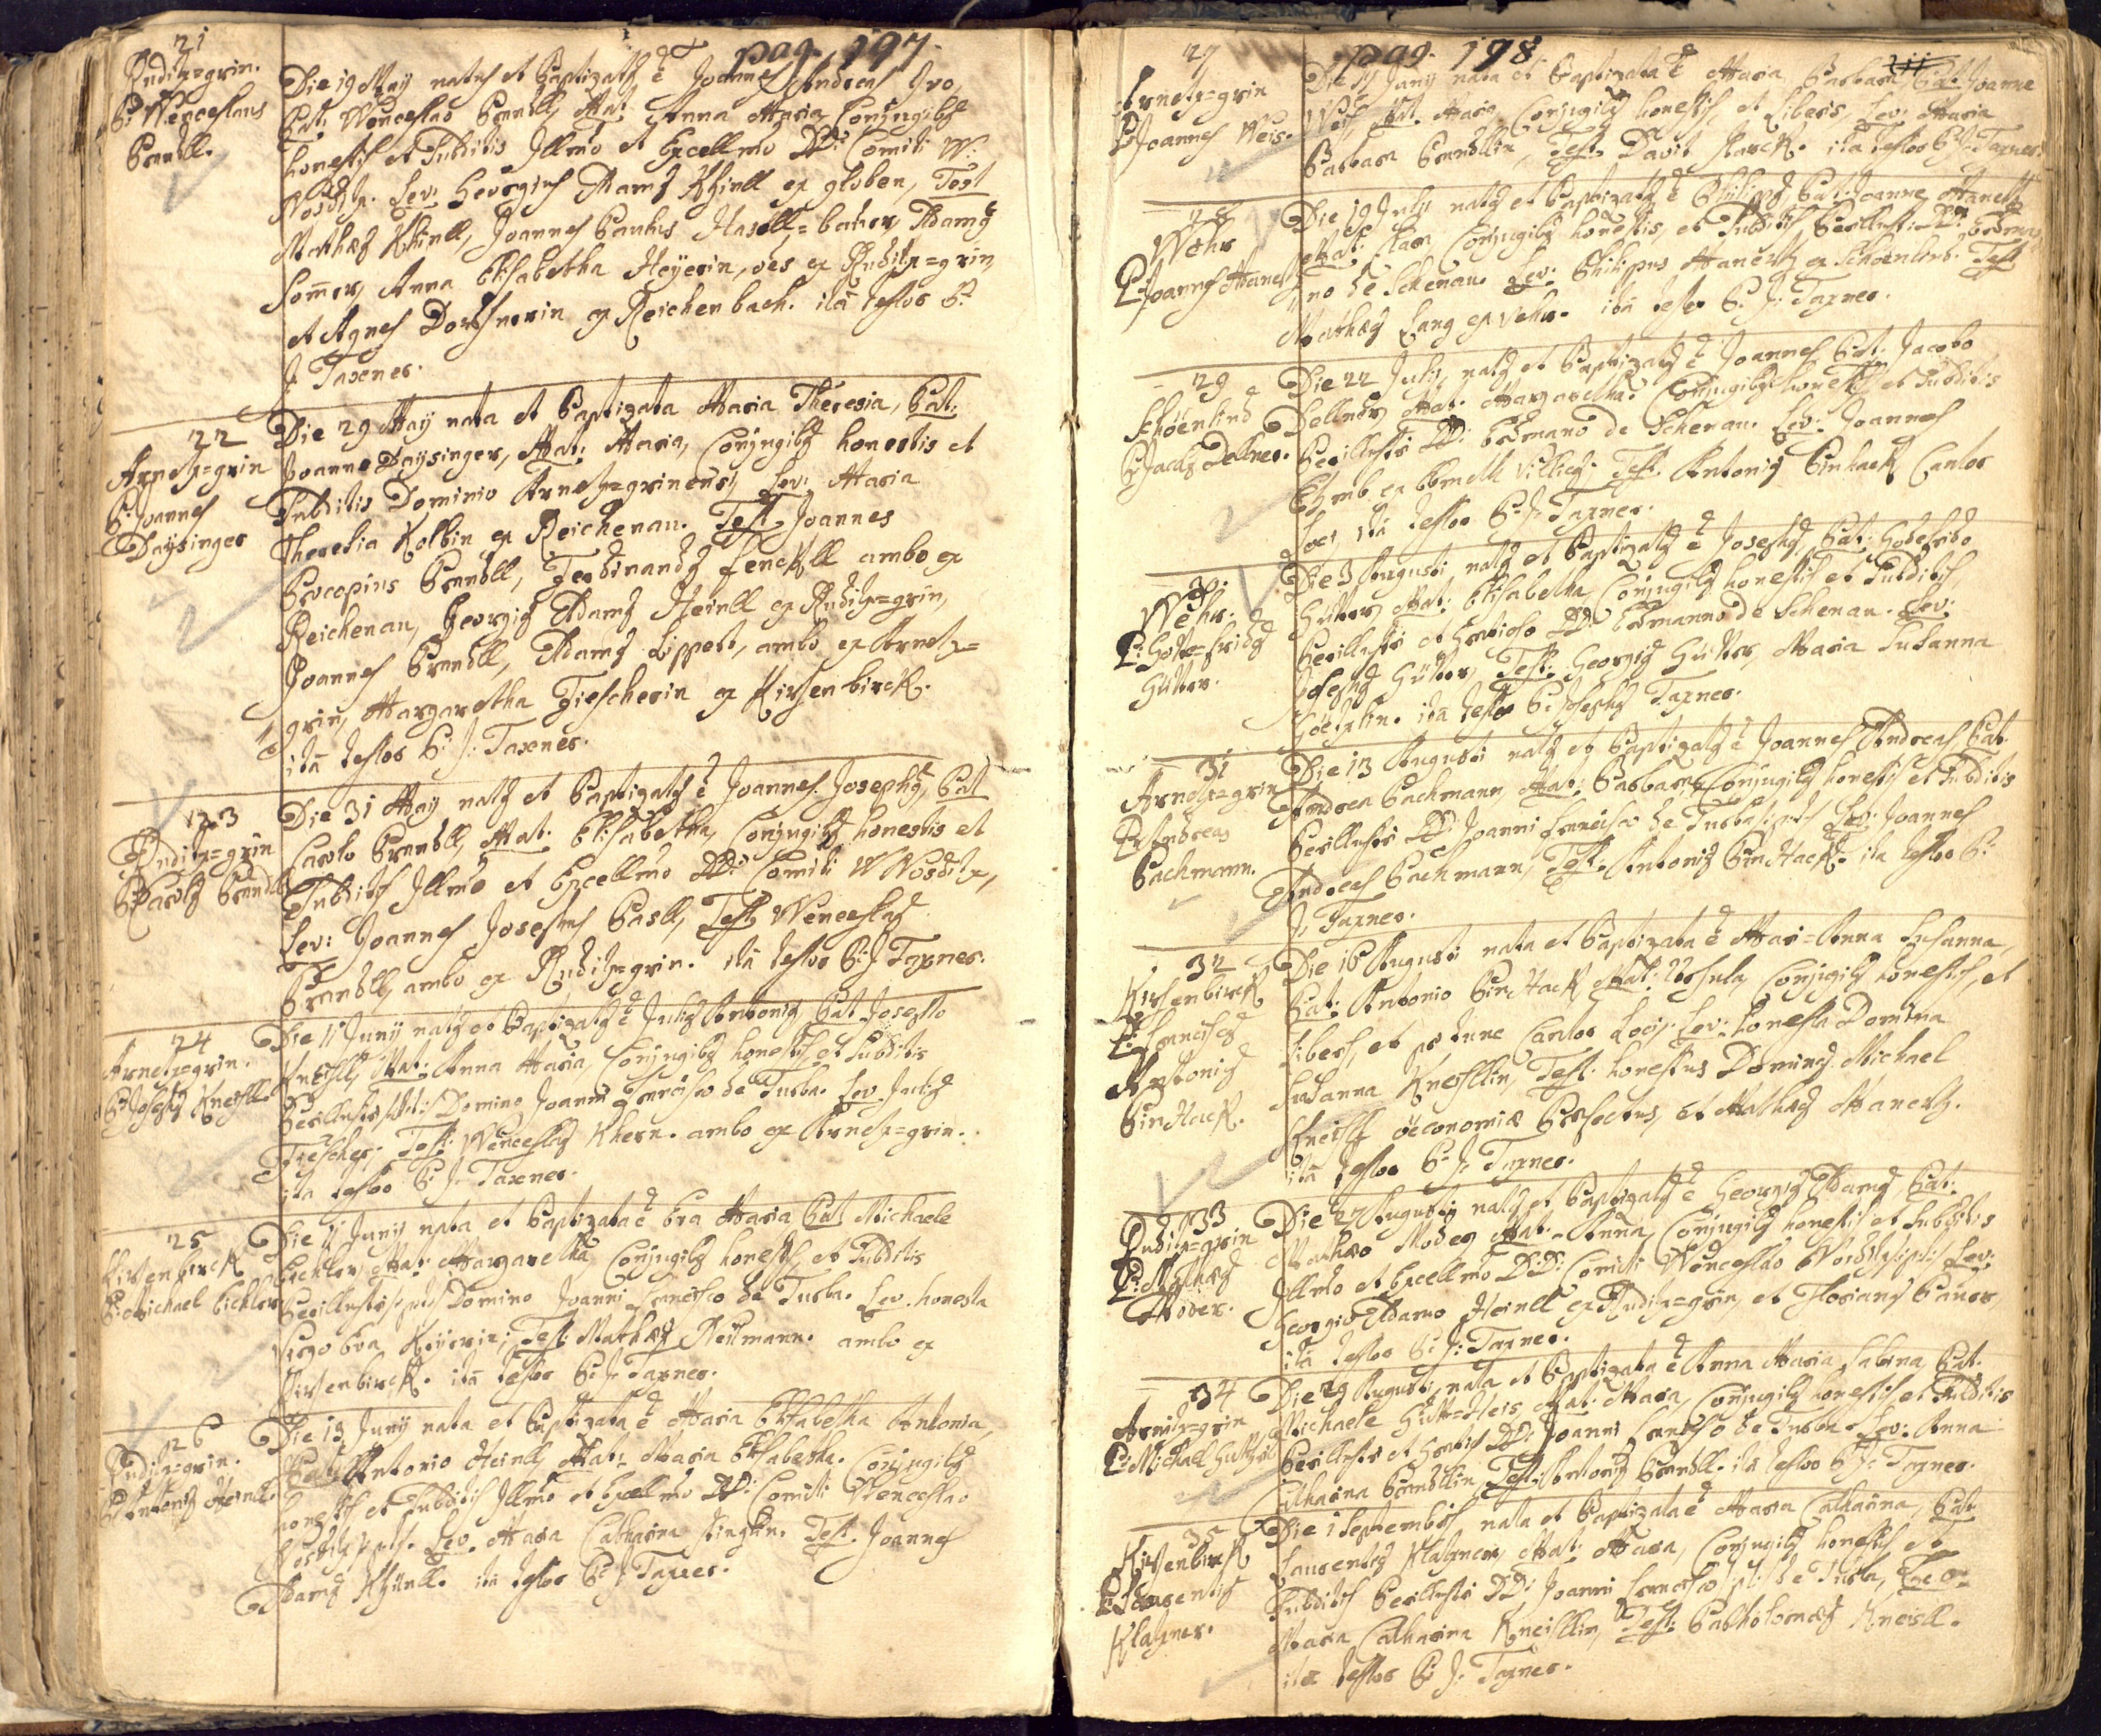 pag. 197.
21
Ruditz=grin.
P: Wenceslaus
Brandll.
Die 19 May natus et Baptizatus ē Joannes Andreas Ivo,
Pat: Wenceslao Brandll, Mat: Anna Maria, Conjugibus
honestis et Subditis Illmo et Excellmo DDi: Comiti W:
Nostitz. Lev: Georgius Adamus Khinll ex globen, Test
Mathæus Khinll, Joannes Paulus Hasell=bacher, Adamus
Somer, Anna Elisabetha Heyerin, oes ex Ruditz=grin,
et Agnes Dorschnerin ex Reichenbach. ità testor P:
J: Taxner.
22
Arnetz=grin
P: Joannes
Daysinger
Die 29 May nata et Baptizata Maria Theresia, Pat:
Joanne Daysinger, Mat: Maria, Conjugibus honestis et
Subditis Dominio Arnetz=grinensi, Lev: Maria
Theresia Kolbin ex Reichenau. Test Joannes
Procopius Brandll, Ferdinandus fenckll ambo ex
Reichenau, Georgius Adamus Heinll ex Ruditz=grin,
Joannes Brandll, Adamus Lippert, ambo ex Arnetz=
grin, Margaretha Fiescherin ex Kirsenbirck.
ità testor P: J: Taxner.
23
Ruditz=grin
P: Carolus Brandll
Die 31 May natus et Baptizatus ē Joannes Josephus, Pat
Carolo Brandll, Mat: Elisabetha, Conjugibus honestis et
Subditis Illmo et Excellmo DDi: Comiti W Nostitz,
Lev: Joannes Josephus Pasll, Test Wenceslaus
Brandll, ambo ex Ruditz=grin. ità testor P: J Taxner.
24
Arnetz=grin.
P: Josephus Kneissll
Die 11 Junij natus et Baptizatus ē Julius Antonius Pat Josepho
Kneisll, Mat: Anna Maria, Conjugibus honestis, et Subditis
Perillustri Domino Joanni Francisco de Turba. Lev Julius
Fiescher, Test: Wenceslaus Khern. ambo ex Arnetz=grin.
ità testor P: J: Taxner.
25
Kirsenbirck
P: Michael Eichler
Die 11 Junij nata et Baptizata ē Eva Maria Pat Michaele
Eichler, Mat: Margaretha, Conjugibus honestis, et Subditis
Perillustri Domino Joanni Francisco de Turba. Lev. honesta
Virgo Eva Keyerin; Test: Mathæus Neumann. ambo ex
Kirsenbirck. ità testor P: J: Taxner.
26
Ruditz=grin.
P: Antonius Heinll.
Die 13 Junij nata et Baptizata ē Maria Elisabetha Antonia,
Pat: Antonio Heinll, Mat: Maria Elisabetha. Conjugibus
honestis et Subditis Illmo et Excellmo DDi: Comiti Wenceslao
Lev. Maria Catharina Test. Joannes
Adamus Khinll. ità testor P: J: Taxner.
pag. 198
27
Arnetz=grin
P: Joannes Weis.
Die Junij nata et Baptizata ē Maria Barbara, Pat: Joanne
Weis, Mat. Maria Conjugibus honestis, et Liberis. Lev: Maria
Barbara Brandllin, Test. Davit Starck. ità testor P: J: Taxner.
28
Wehr
P: Joannes Hanerl
Die 19 July natus et Baptizatus ē Philippus Pat: Joanne
Mat: Clara Conjugibus honestis, et Subditis Perillustri D:
no de Schenau. Lev: Philipus ex Schöenlind. Test
Mathæus Lang ex Wehr. ità testor P: J: Taxner.
29
Schöenlind
P: Jacobus Dellner.
Die 22 July, natus et Baptizatus ē Joannes Pat: Jacobo
Dellner, Mat: Margaretha. Conjugibus honestis et Subditis
Perillustri DDi: Erdmano de Schenau. Lev: Joannes
Test. Antonius Binhack Cantor
Loci, ità testor P: J: Taxner.
30
Wehr:
P: Gotte=fridus
Gütter.
Die 3 Augusti natus et Baptizatus ē Josephus, Pat: Godefrido
Gütter, Mat: Elisabetha, Conjugibus honestis et Subditis
Perillustri et Gratioso DDi Erdmanno de Schenau. Lev:
Josephus Gütter, Test: Georgius Gütter, Maria Susanna
ità testor P: Josephus Taxner.
31
Arnetz=grin
P: Andreas
Bachmann.
Die 13 Augusti natus et Baptizatus ē Joannes Andreas Pat.
Andrea Bachmann, Mat: Barbara, Conjugibus honestis et Subditis
Perillustri DDi: Joanni Francisco de Turba Lev: Joannes
Andreas Bachmann, Test. Antonius BinHack. ità testor P:
J: Taxner.
32
Kirsenbirck
P: Franciscus
Antonius
BinHack.
Die 16 Augusti nata et Baptizata ē Mari=Anna Susanna,
Pat: Antonio BinHack, Mat: Ursula, Conjugibus honestis, et
Liberis, et pro tunc Cantor Loci. Lev: honesta Domina
Susanna Kneisllin, Test. honestus Dominus Michael
Kneisll öeconomiæ Præfectus, et Mathæus
ità testor P: J: Taxner.
33
Ruditz=grin
P: Mathæus
Moder.
Die 27 Augusti natus et Baptizatus ē Georgius Adamus, Pat:
Mathæo Moder, Mat. Anna, Conjugibus honestis et Subditis
Illmo et Excellmo D:D: Comiti Wenceslao Lev:
Georgio Adamo Heinll ex Ruditz=grin, et Florianus Bauer,
ità testor P: J: Taxner.
34
Arnetz=grin
P: Michael
Die 29 Augusti, nata et Baptizata ē Anna Maria Sabina Pat.
Michaele Mat. Maria, Conjugibus honestis et Subditis
Perillustri et Gratioso DDi: Joanni Francisco de Turba. Lev: Anna
Catharina Brandllin, Test: Antonius Brandll. ità testor P: J: Taxner.
35
Kirsenbirck
P: Laurentius
Klatzner.
Die 1 Septembris nata et Baptizata ē Maria Catharina, Pat.
Laurentius Klatzner, Mat: Maria, Conjugibus honestis et
Subditis Perillustri DDi Joanni Francisco de Turba, Lev:
Maria Catharina Kneisllin, Test: Bartholomæus Kneisll.
ità testor P: J: Taxner.